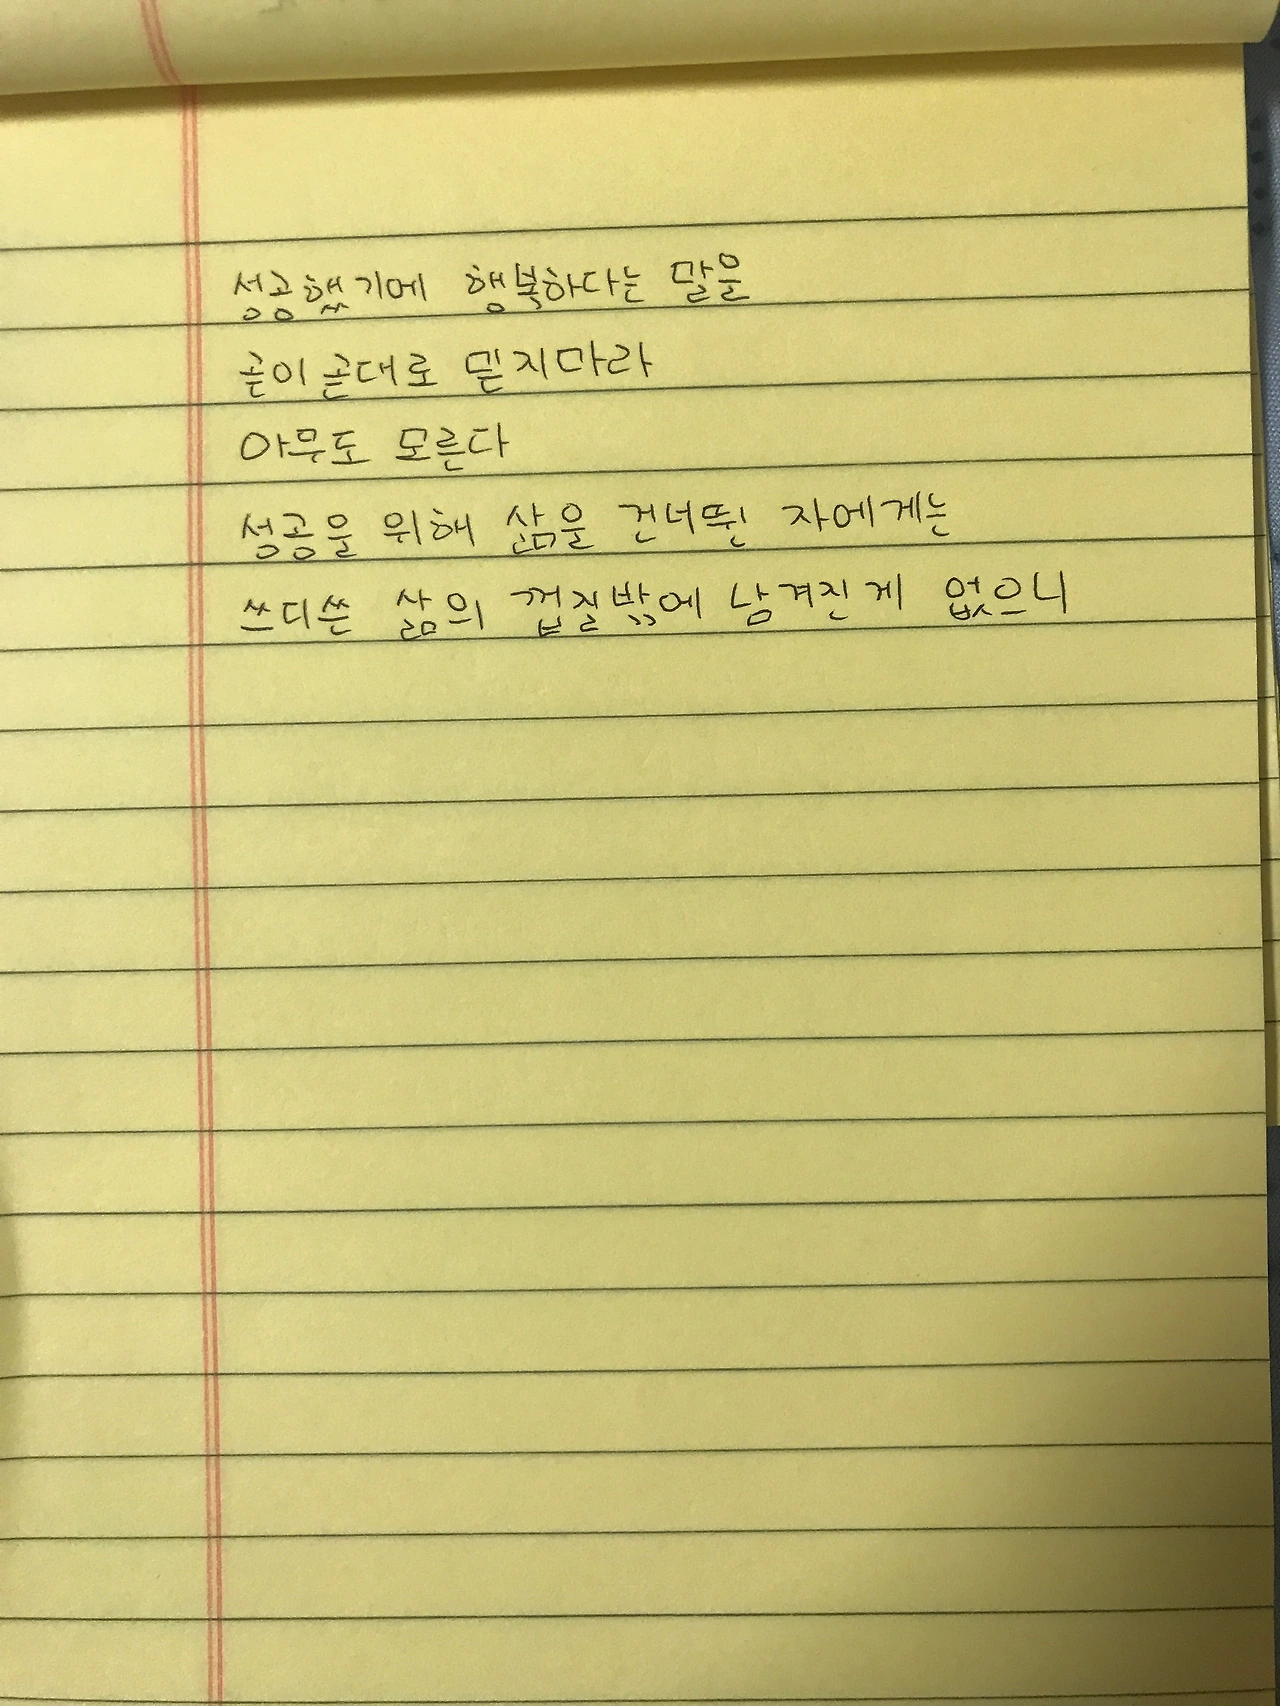 성공했기에 행복하다는 말을
곧이 곧대로 믿지마라
아무도 모른다
성공을 위해 삶을 건너뛴 자에게는
쓰디쓴 삶의 껍질밖에 남겨진 게 없으니